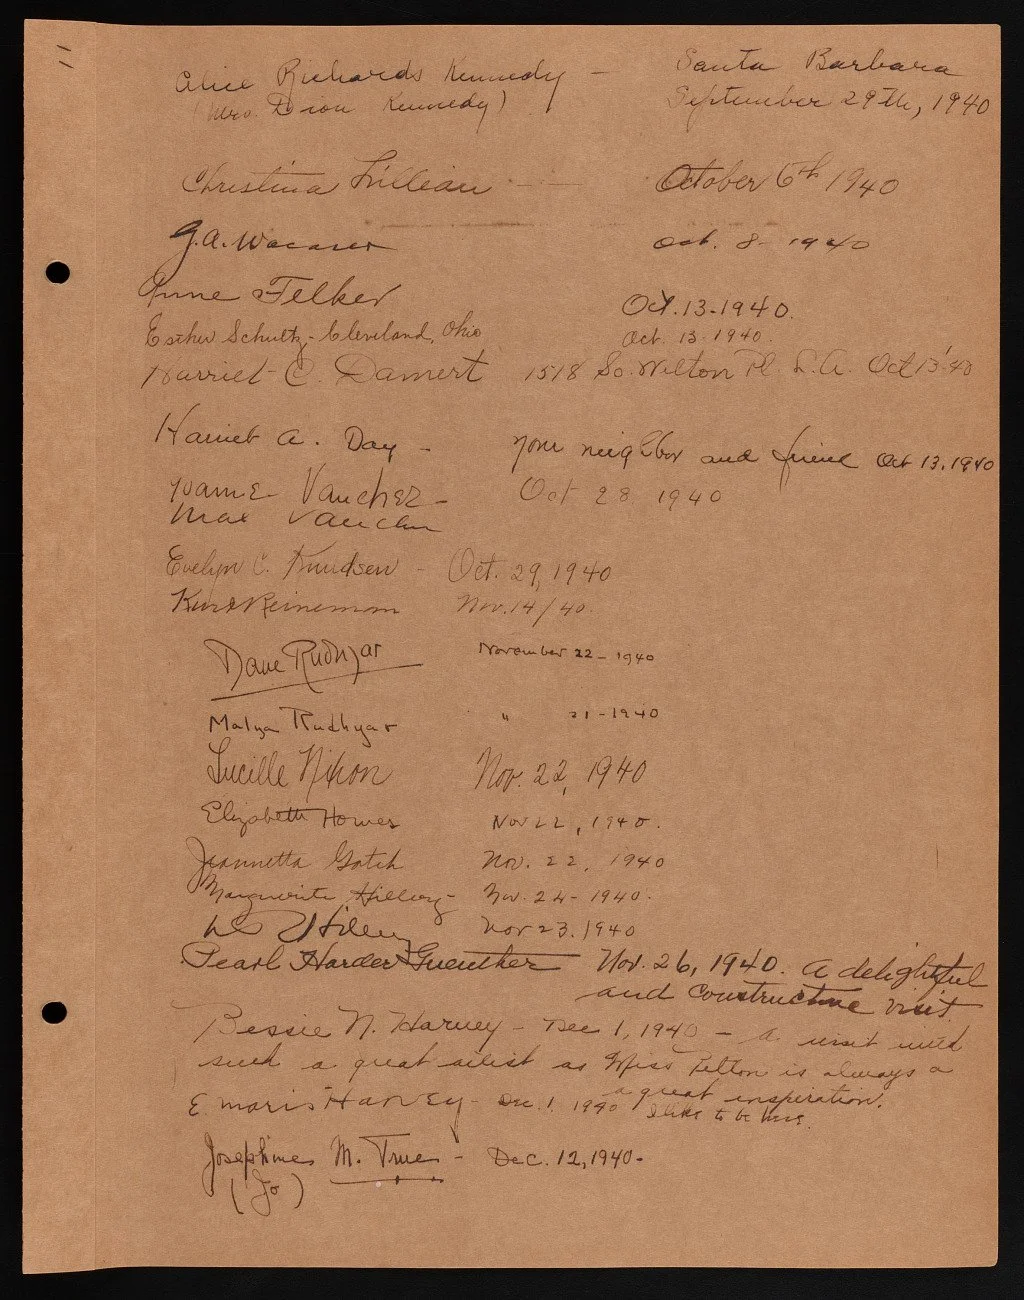 Alice Richards Kennedy — Santa Barbara
(Mrs. Dion Kennedy) September 29th, 1940
Christina Lillian — October 6th 1940
G.A. Oct. 8 - 1940
Anne Felker Oct. 13-1940.
Esther Schultz - Cleveland, Ohio Oct. 13-1940.
Harriet C. Damert 1518 So. Wilton Pl. L.A. Oct 13 '40
Harriet A. Day - your neighbor and friend Oct 13, 1940
Vaucher - Oct 28 1940
Max Vaucher
Evelyn C. Knudsen - Oct. 29, 1940
Kurt Reinemann Nov. 14/40.
Dane Rudhyar November 22 - 1940
Malya Rudhyar " 21-1940
Lucille Nixon Nov. 22, 1940
Elizabeth Howes Nov 22, 1940.
Jeannetta Gatch Nov. 22, 1940
Marguerite - Nov. 24 - 1940.
Nov 23. 1940
Pearl Harder Guenther Nov. 26, 1940. A delightful
and constructive visit
Bessie N. Harvey - Dec 1, 1940 - a visit with
such a great artist as Miss Pelton is always a
a great inspiration.
E. Moris Harvey - Dec. 1. 1940 I like to be here.
Josephine M. True - Dec. 12, 1940.
(Jo)